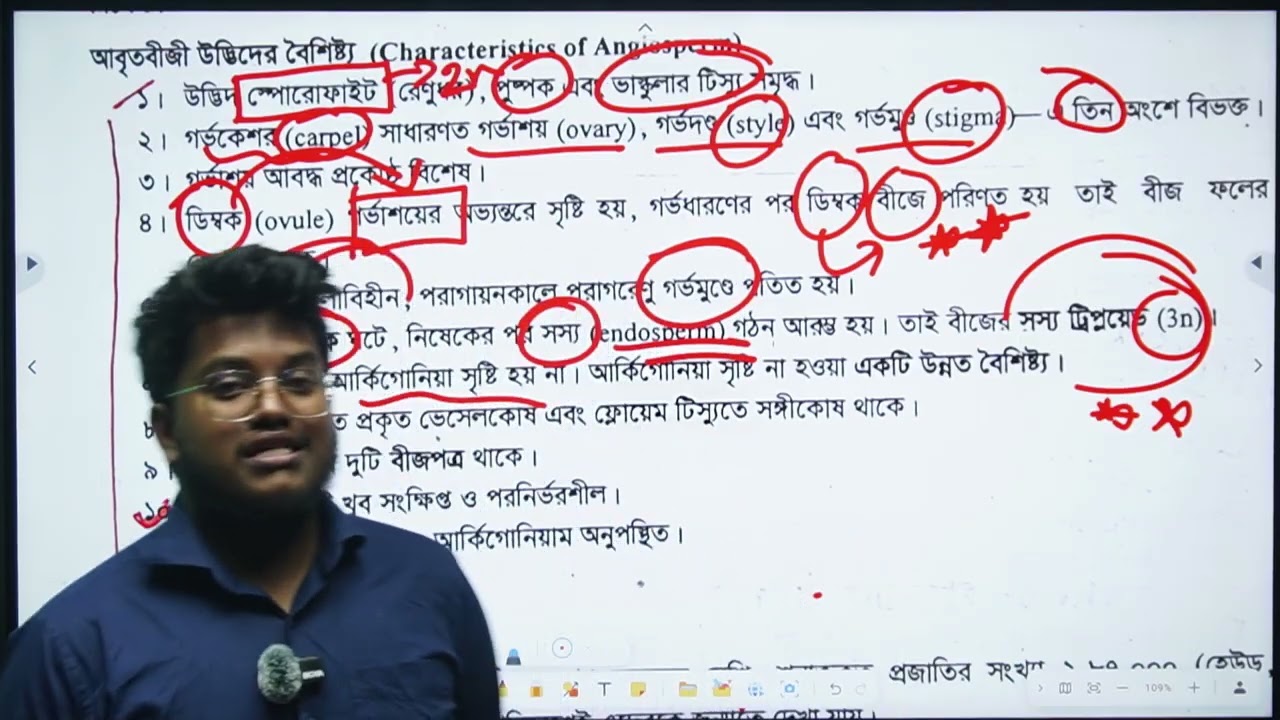 আবৃতবীজী উদ্ভিদের বৈশিষ্ট্য (Characteristics of Angiosperm)
১। উদ্ভিদ স্পোরোফাইট (রেণুধর), পুষ্পক এবং ভাস্কুলার টিস্যু সমৃদ্ধ।
২। গর্ভকেশর (carpel) সাধারণত গর্ভাশয় (ovary), গর্ভদণ্ড (style) এবং গর্ভমুণ্ড (stigma)— এ তিন অংশে বিভক্ত।
৩। গর্ভাশয় আবদ্ধ প্রকোষ্ঠ বিশেষ।
৪। ডিম্বক (ovule) গর্ভাশয়ের অভ্যন্তরে সৃষ্টি হয়, গর্ভধারণের পর ডিম্বক বীজে পরিণত হয় তাই বীজ ফলের
পরাগায়নকালে পরাগরেণু গর্ভমুণ্ডে পতিত হয়।
ঘটে, নিষেকের পর সস্য (endosperm) গঠন আরম্ভ হয়। তাই বীজের সস্য ট্রিপ্লয়েড (3n)।
আর্কিগোনিয়া সৃষ্টি হয় না। আর্কিগোনিয়া সৃষ্টি না হওয়া একটি উন্নত বৈশিষ্ট্য।
৮ প্রকৃত ভেসেলকোষ এবং ফ্লোয়েম টিস্যুতে সঙ্গীকোষ থাকে।
৯। দুটি বীজপত্র থাকে।
১০ খুব সংক্ষিপ্ত ও পরনির্ভরশীল।
আর্কিগোনিয়াম অনুপস্থিত।
প্রজাতির
109%